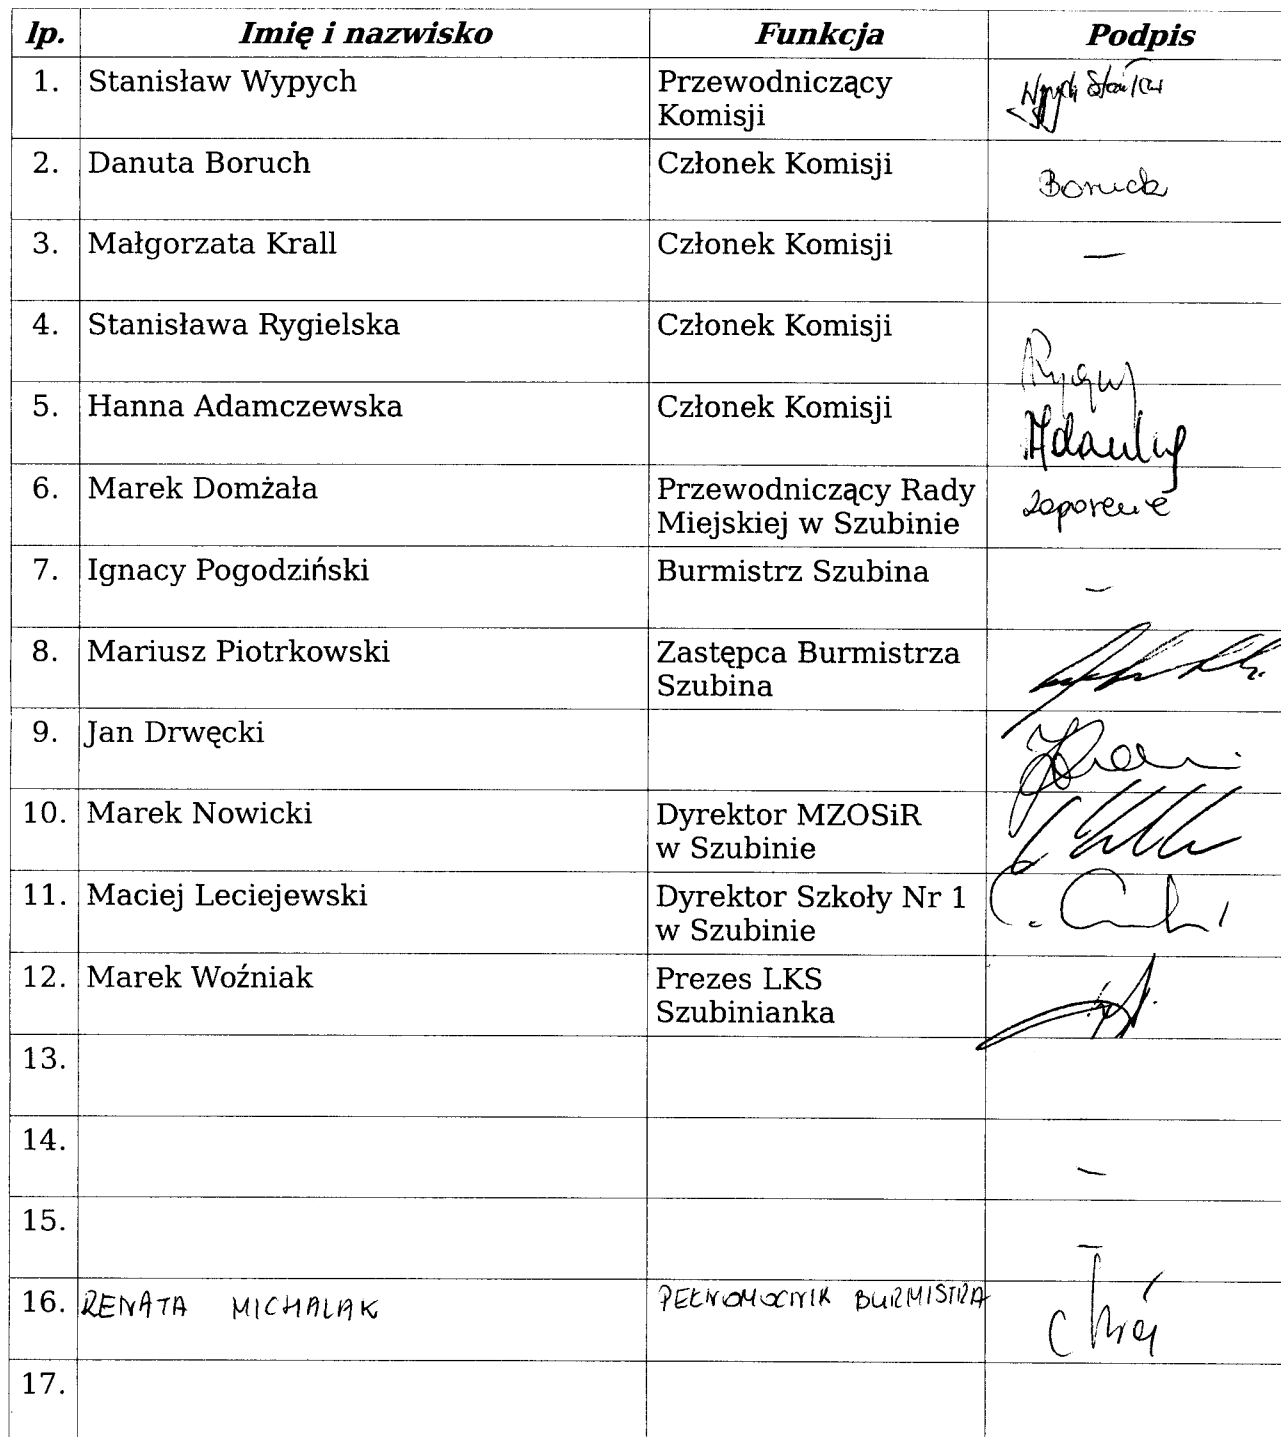 lp. Imię i nazwisko Funkcja Podpis
1. Stanisław Wypych Przewodniczący
Komisji
2. Danuta Boruch Członek Komisji Boruch
3. Małgorzata Krall Członek Komisji —
4. Stanisława Rygielska Członek Komisji
5. Hanna Adamczewska Członek Komisji
6. Marek Domżała Przewodniczący Rady
Miejskiej w Szubinie
7. Ignacy Pogodziński Burmistrz Szubina –
8. Mariusz Piotrkowski Zastępca Burmistrza
Szubina
9. Jan Drwęcki
10. Marek Nowicki Dyrektor MZOSiR
w Szubinie
11. Maciej Leciejewski Dyrektor Szkoły Nr 1
w Szubinie
12. Marek Woźniak Prezes LKS
Szubinianka
13.
14. –
15. –
16. RENATA MICHALAK PEŁNOMOCNIK BURMISTRZA
17.